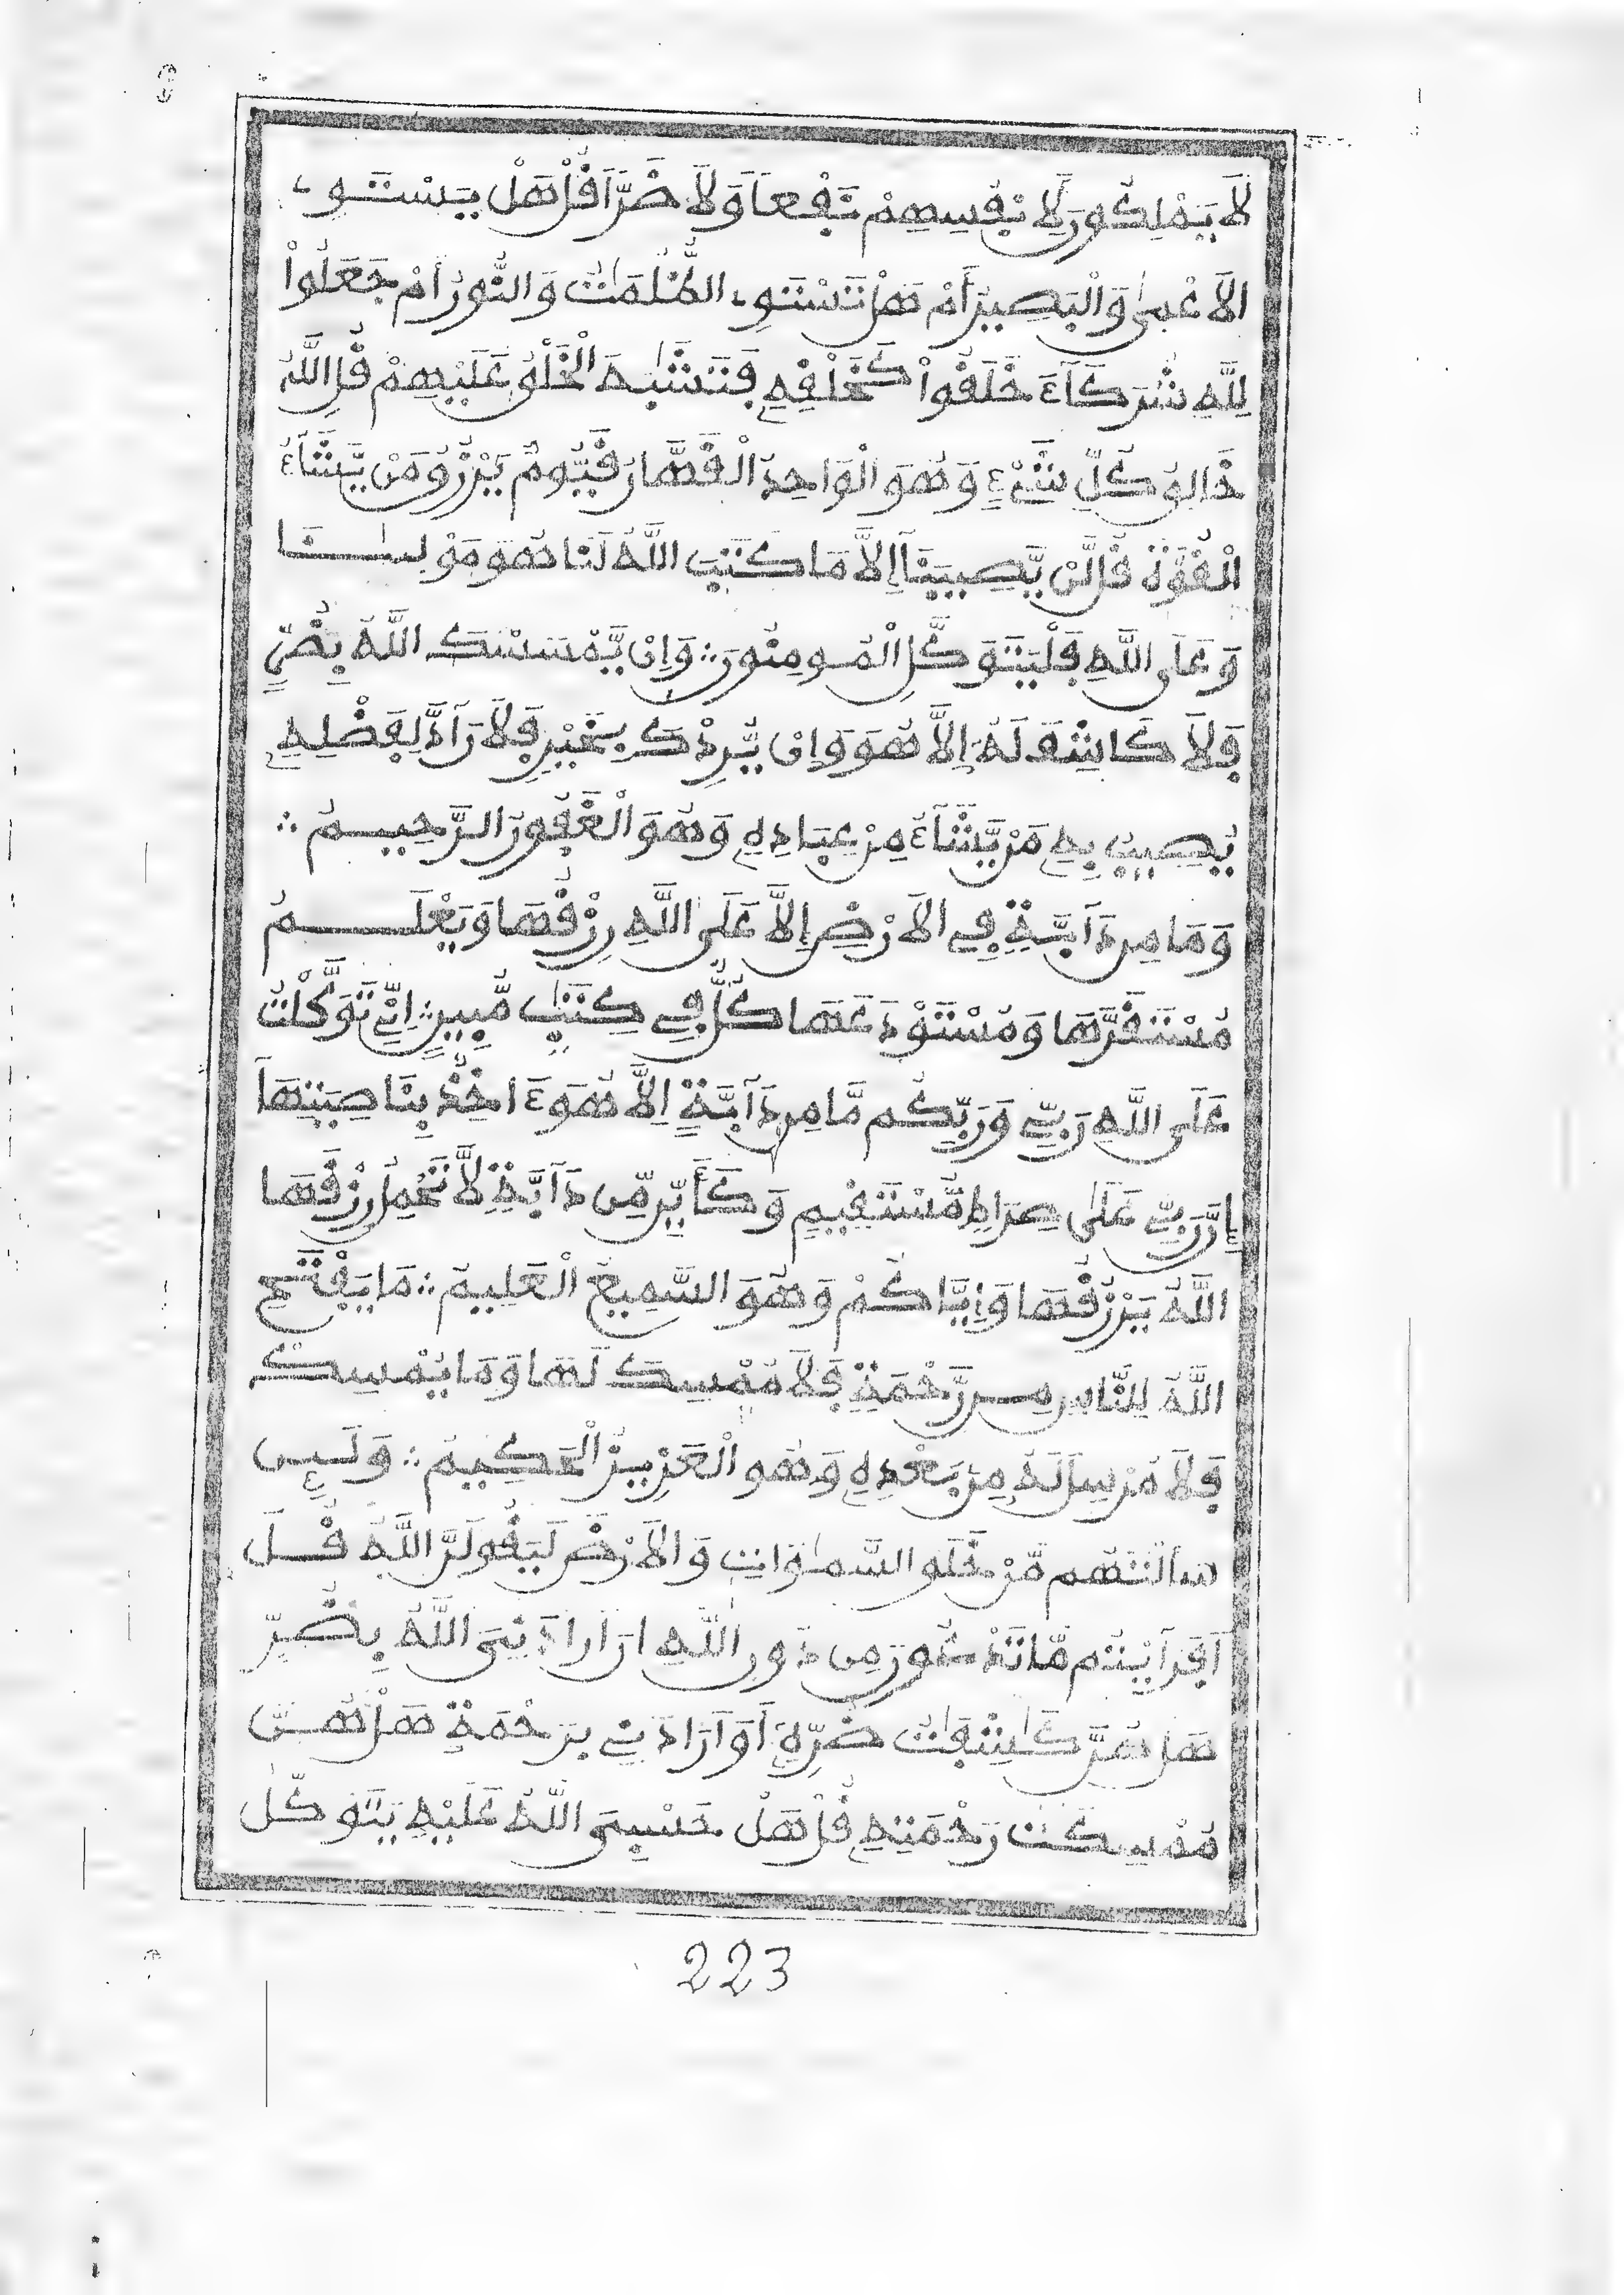 لَا يَمْلِكُونَ لِأَنْفُسِهِمْ نَفْعاً وَلَا ضَرّاً قُلْ هَلْ يَسْتَوِے
الَاعْمىٰ وَالْبَصِيرُ أَمْ هَلْ تَسْتَوِے الظُّلُمَٰتُ وَالنُّورُ أَمْ جَعَلُواْ
لِلَّهِ شُرَكَآءَ خَلَقُواْ كَخَلْقِهِ فَتَشَٰبَهَ الْخَلْقُ عَلَيْهِمْ قُلِ اللَّهُ
خَالِقُ كُلِّ شَيْءٍ وَهُوَ الْوَاحِدُ الْقَهَّارُ قَيُّومٌ يَرْزُقُ مَنْ يَّشَآءُ
الْقُوَّةُ قُل لَّنْ يُّصِيبَنَآ إِلَّا مَا كَتَبَ اللَّهُ لَنَا هُوَ مَوْلَيٰنَا
وَعَلَى اللَّهِ فَلْيَتَوَكَّلِ الْمُومِنُونَ ؞ وَإِنْ يَّمْسَسْكَ اللَّهُ بِضُرٍّ
فَلَا كَاشِفَ لَهُ إِلَّا هُوَ وَإِنْ يُّرِدْكَ بِخَيْرٍ فَلَا رَآدَّ لِفَضْلِهِ
يُصِيبُ بِهِ مَنْ يَّشَآءُ مِنْ عِبَادِهِ وَهُوَ الْغَفُورُ الرَّحِيمُ ؞
وَمَا مِن دَآبَّةٍ فِي الَارْضِ إِلَّا عَلَى اللَّهِ رِزْقُهَا وَيَعْلَمُ
مُسْتَقَرَّهَا وَمُسْتَوْدَعَهَا كُلٌّ فِي كِتَٰبٍ مُّبِينٍ ؞ إِنِّي تَوَكَّلْتُ
عَلَى اللَّهِ رَبِّي وَرَبِّكُم مَّا مِن دَآبَّةٍ إِلَّا هُوَ ءَاخِذٌ بِنَاصِيَتِهَآ
إِنَّ رَبِّي عَلَىٰ صِرَاطٍ مُّسْتَقِيمٍ وَكَأَيِّن مِّن دَآبَّةٍ لَّا تَحْمِلُ رِزْقَهَا
اللَّهُ يَرْزُقُهَا وَإِيَّاكُمْ وَهُوَ السَّمِيعُ الْعَلِيمُ ؞ مَا يَفْتَحِ
اللَّهُ لِلنَّاسِ مِن رَّحْمَةٍ فَلَا مُمْسِكَ لَهَا وَمَا يُمْسِكْ
فَلَا مُرْسِلَ لَهُ مِنْ بَعْدِهِ وَهُوَ الْعَزِيزُ الْحَكِيمُ ؞ وَلَئِن
سَأَلْتَهُم مَّنْ خَلَقَ السَّمَٰوَاتِ وَالَارْضَ لَيَقُولُنَّ اللَّهُ قُلَ
اَفَرَآيْتُم مَّا تَدْعُونَ مِن دُونِ اللَّهِ إِنَ ارَادَنِيَ اللَّهُ بِضُرٍّ
هَلْ هُنَّ كَٰشِفَٰتُ ضُرِّهِ أَوَ ارَادَنِي بِرَحْمَةٍ هَلْ هُنَّ
مُمْسِكَٰتُ رَحْمَتِهِ قُلْ هَلْ حَسْبِيَ اللَّهُ عَلَيْهِ يَتَوَكَّلُ
223